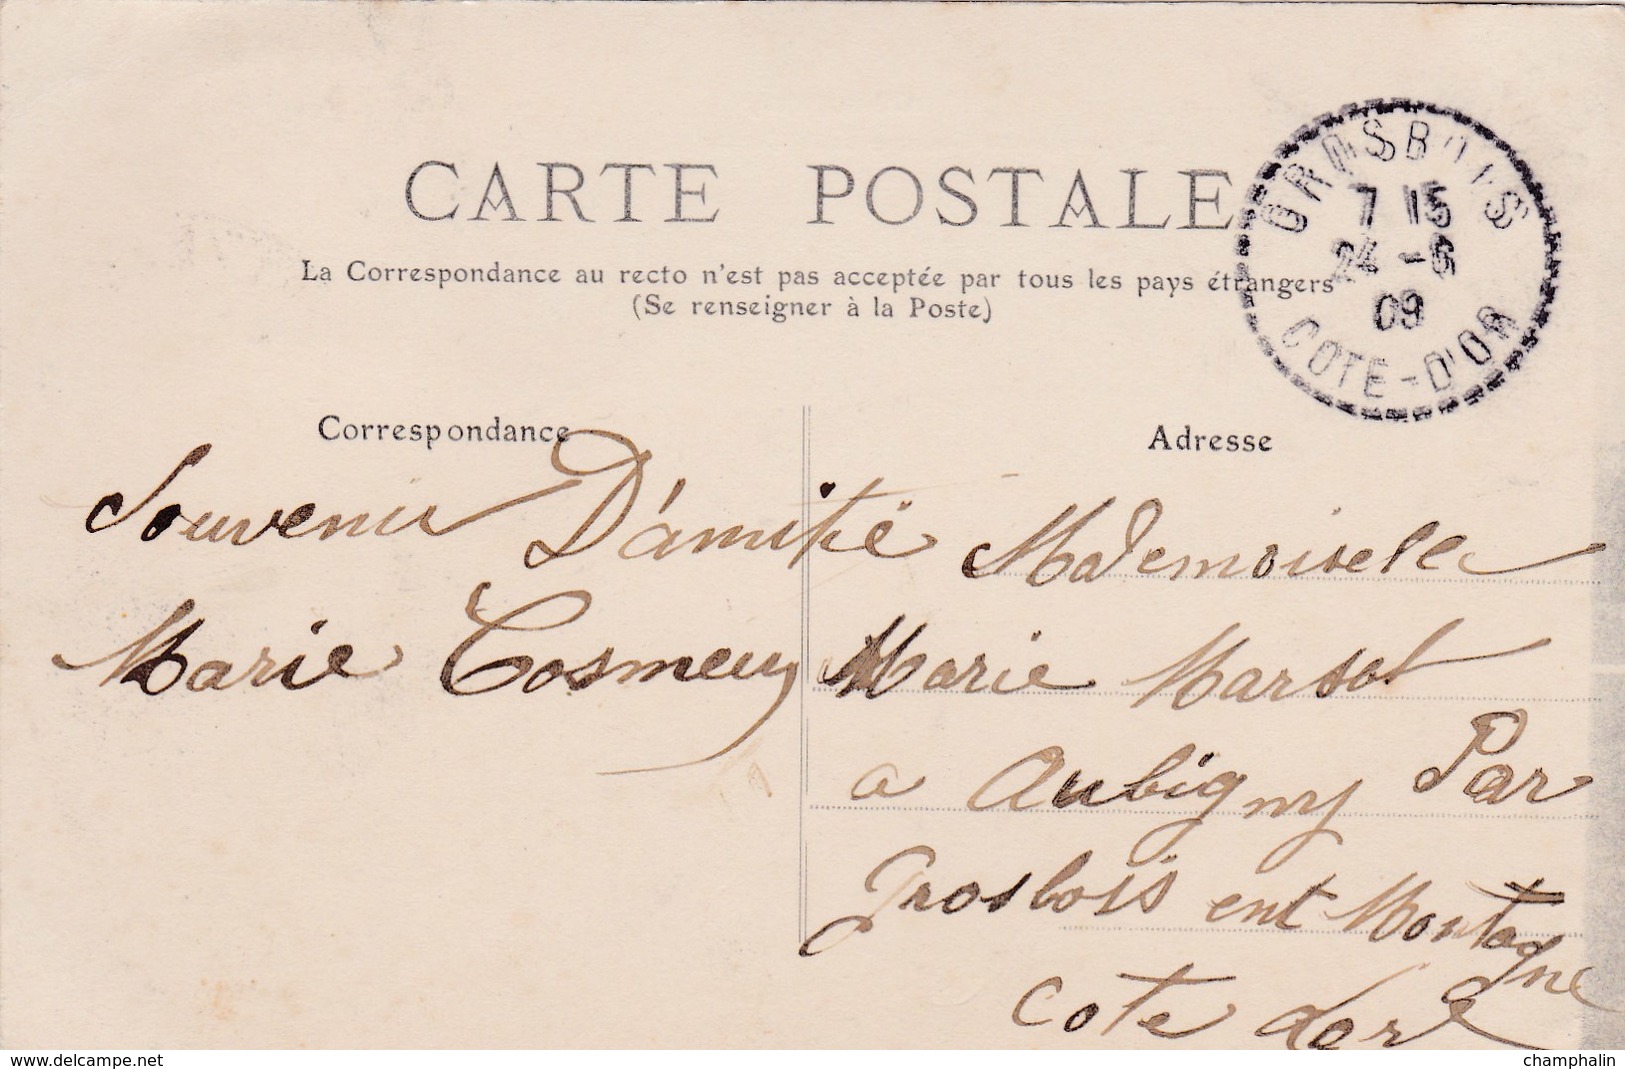 CARTE POSTALE
La Correspondance au recto n'est pas acceptée par tous les pays étrangers
(Se renseigner à la Poste)
GROSBOIS
7 15
24 -6
09
COTE-D'OR
Correspondance
Souvenir D'amitié
Marie
Adresse
Mademoiselle
Marie Marsot
a Aubigny Par
Grosbois ent Montagne
Cote dore
www.delcampe.net
champhalin